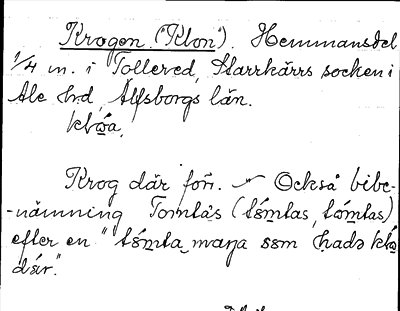 Krogen ("Klon"). Hemmansdel
1/4 m. i Tollered, Starrkärrs socken i
Ale hrd, Älfsborgs län.
Krog där förr. — Också bibe-
-nämning Tomtås (tǿmtas, tǿmtas)
efter en "tǿmta
där."